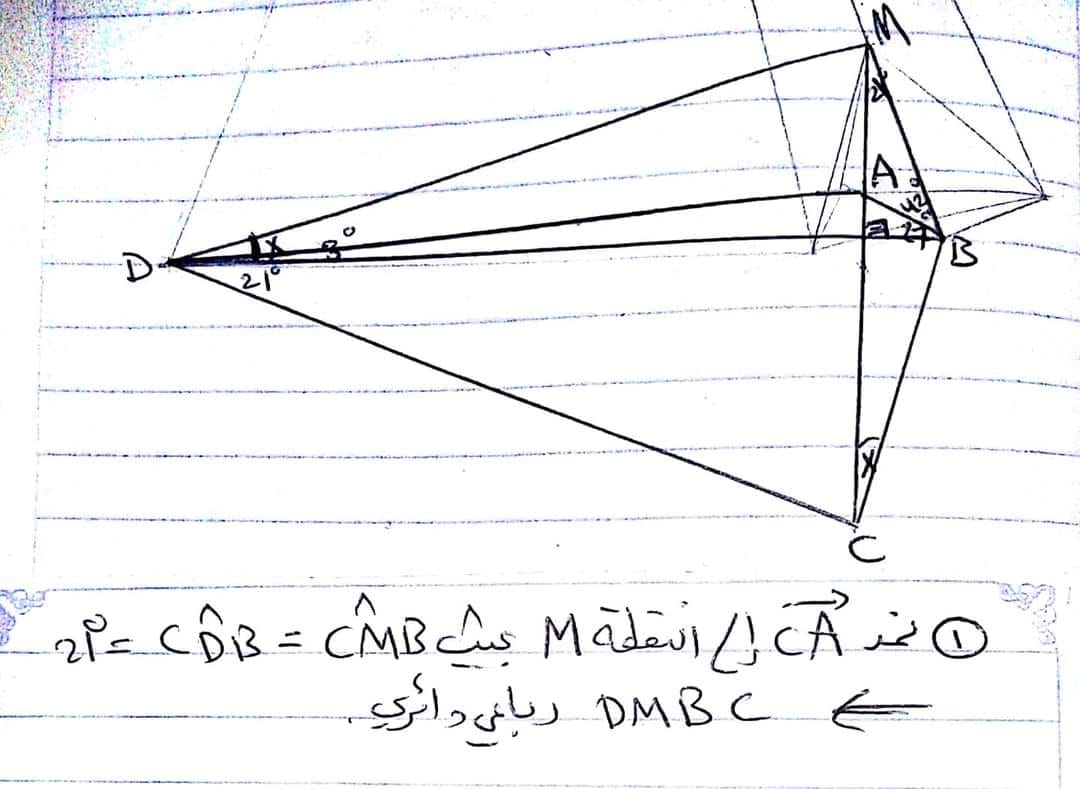 M
2x
A
42°
27
B
D
x
3°
21°
x
C
① نمد CA إلى النقطة M بحيث CMB = CDB = 21°
← DMBC رباعي دائري.